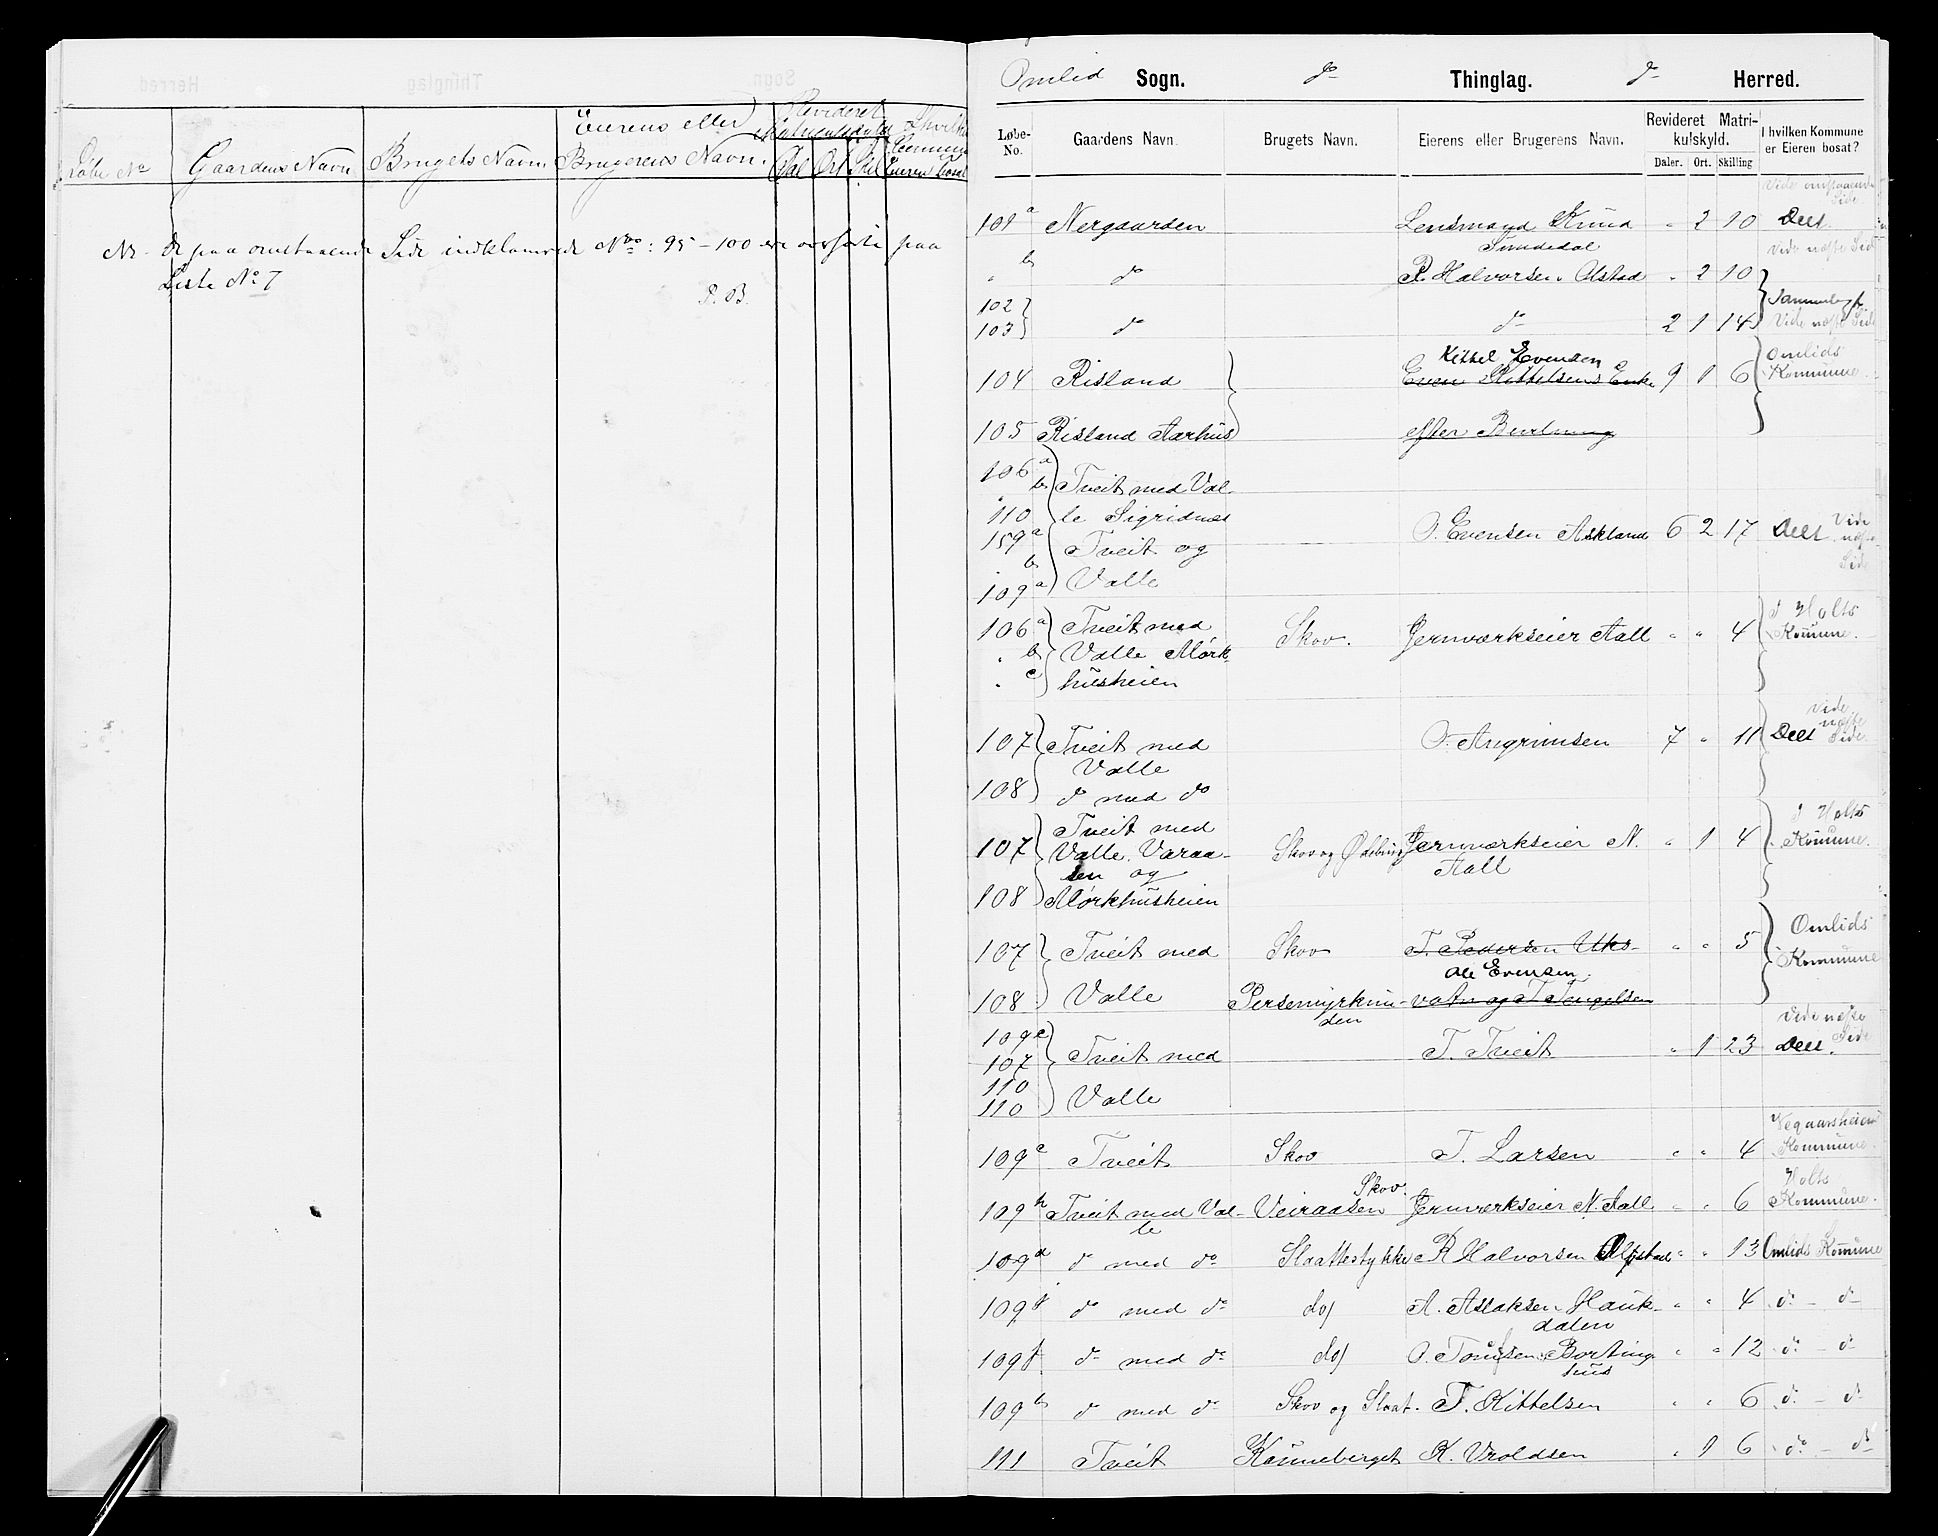 Løbe No Gaardens Navn Brugets Navn Eierens eller Brugerens Navn. Revideret Matriculskyld Dal Ort Skil I hvilken Kommune Eieren bosat
Nr. de paa omstaaende Side indklamrede No: 95-100 ere overførte paa
Liste No 7
P. B.
Omlid Sogn. do Thinglag. do Herred.
Løbe-No. Gaardens Navn. Brugets Navn. Eierens eller Brugerens Navn. Revideret Matrikulskyld. Daler. Ort. Skilling I hvilken Kommune er Eieren bosat?
Vide omstaaende Side
101 a Nergaarden Lensmand Knud " 2 10 Deels
Simdedal Vide næste Side
" b do P. Halvorsen Olstad " 2 10
102
103 do do 2 1 14 Sammenlagt Vide næste Side
Kittel Evensen
104 Risland Even Kittelsens Enke 9 1 6 Omlids Kommune.
105 Risland Aarhus efter
106 a
" b Tveit med Val-
110 le Sigridnes
159 a Tveit og O. Evensen Askland 6 2 17 Deels Vide næste Side
b
109 a Valle
106 a Tveit med Skov. Jernværkseier Aall " " 4 I Holts Kommune.
" b Valle Mørk-
" c husheien
107 Tveit med O. Angrimsen 7 " 11 Deels Vide næste Side
Valle
108 do med do
107 Tveit med Valle, Varaa- Skov og Ødebrug Jernværkseier N. Aall " 1 4 I Holts Kommune.
sen og
108 Mørkhusheien
107 Tveit med Skov T. Pedersen Uks- " " 5 Omlids Kommune
Ole Evensen.
108 Valle Persemyrknuden vatn og T. Tengelsen
109 c
107 Tveit med T. Tveit " 1 23 Deels. Vide næste Side
110
110 Valle
109 e Tveit Skov T. Larsen " " 4 Vegaarsheiens Kommune.
109 h Tveit med Valle Veiraasen Skov. Jernværkseier N. Aall " " 6 Holts Kommune.
109 d do med do Slaattestykke R Halvorsen Olfstad " " 13 Omlids Kommune
109 f do med do do/ A. Aslaksen Haukdalen " " 4 do - do
109 f do med do do/ O. Tonjsen Bortinghus " " 12 do - do
109 b do med do Skov og Slaat. T. Kittelsen " " 6 do - do
111 Tveit Kanneberget K. Vroldsen " 1 6 do - do